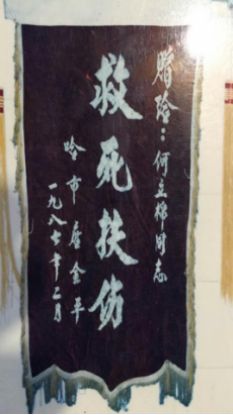 赠给：何立棉同志
救死扶伤
哈市詹金平
一九八七年二月